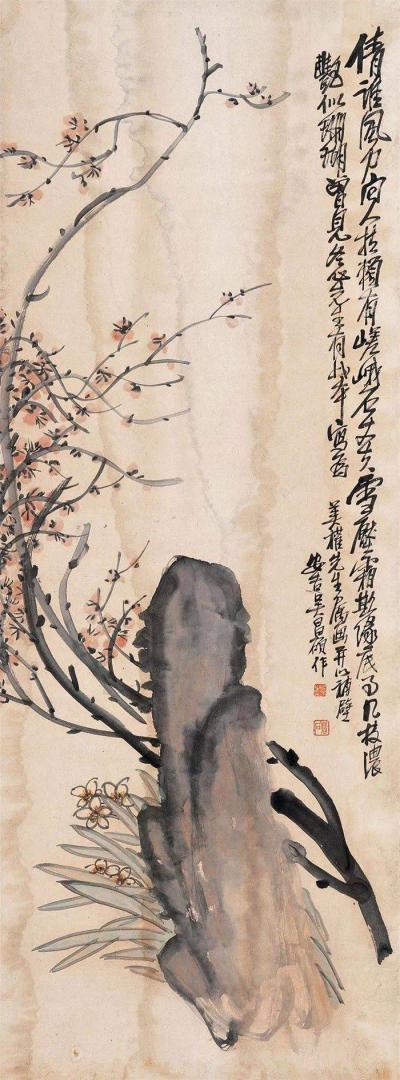 倩誰風力向人扶獨有嵯峨石丈夫雪壓霜欺緣底事几枝濃
豔似珊瑚曾見冬有此本寫
美權先生屬畫并以補壁
安吉吳昌碩作